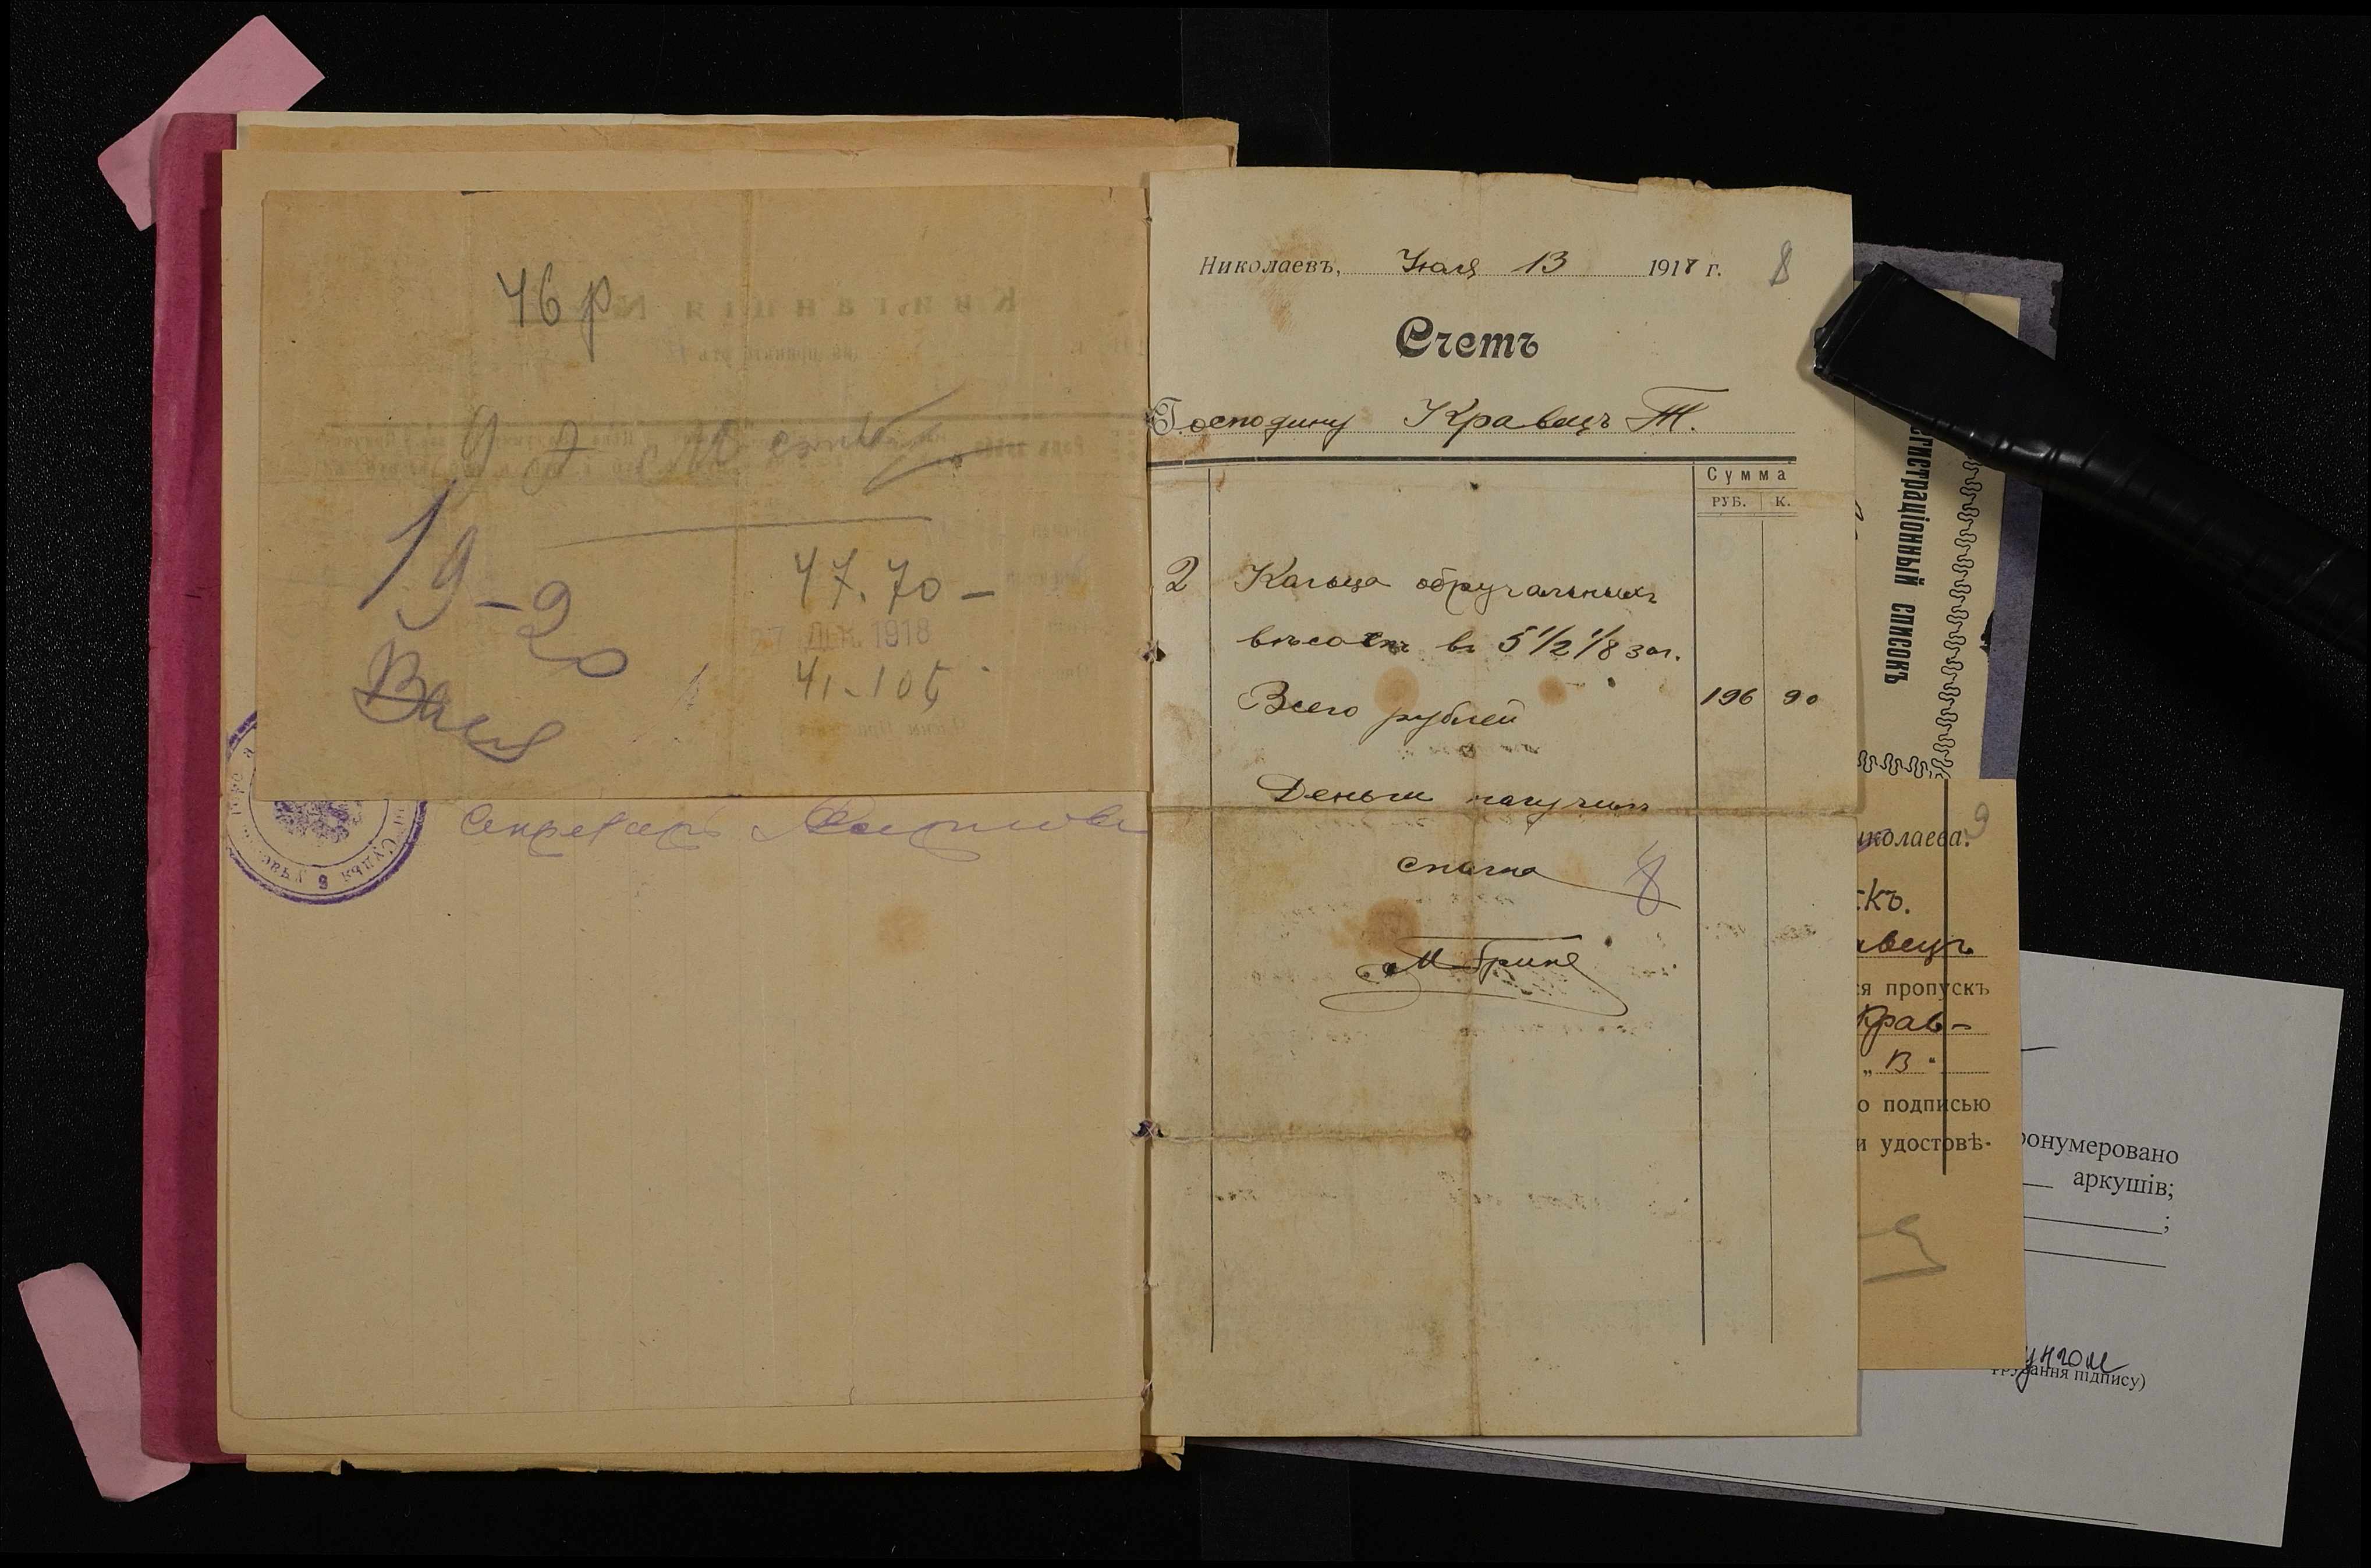 46 р
19-20
Ваня
47.70 -
27 ДЕК. 1918
41-105
Секретарь
Николаевъ, Июля 13 1918 г.
8
Счетъ
Господину Кравецъ Т.
Сумма
РУБ. К.
2 Кальца обручальныхъ
вѣсомъ въ 5 1/2 1/8 зол.
Всего рублей 196 90
Деньги получилъ
сполна 8
егистраціонный списокъ
иколаева. 9
скъ.
авецъ
ся пропускъ
Крав-
„ В "
о подписью
и удостовѣ-
ронумеровано
аркушів;
;
унгом
вання підпису)